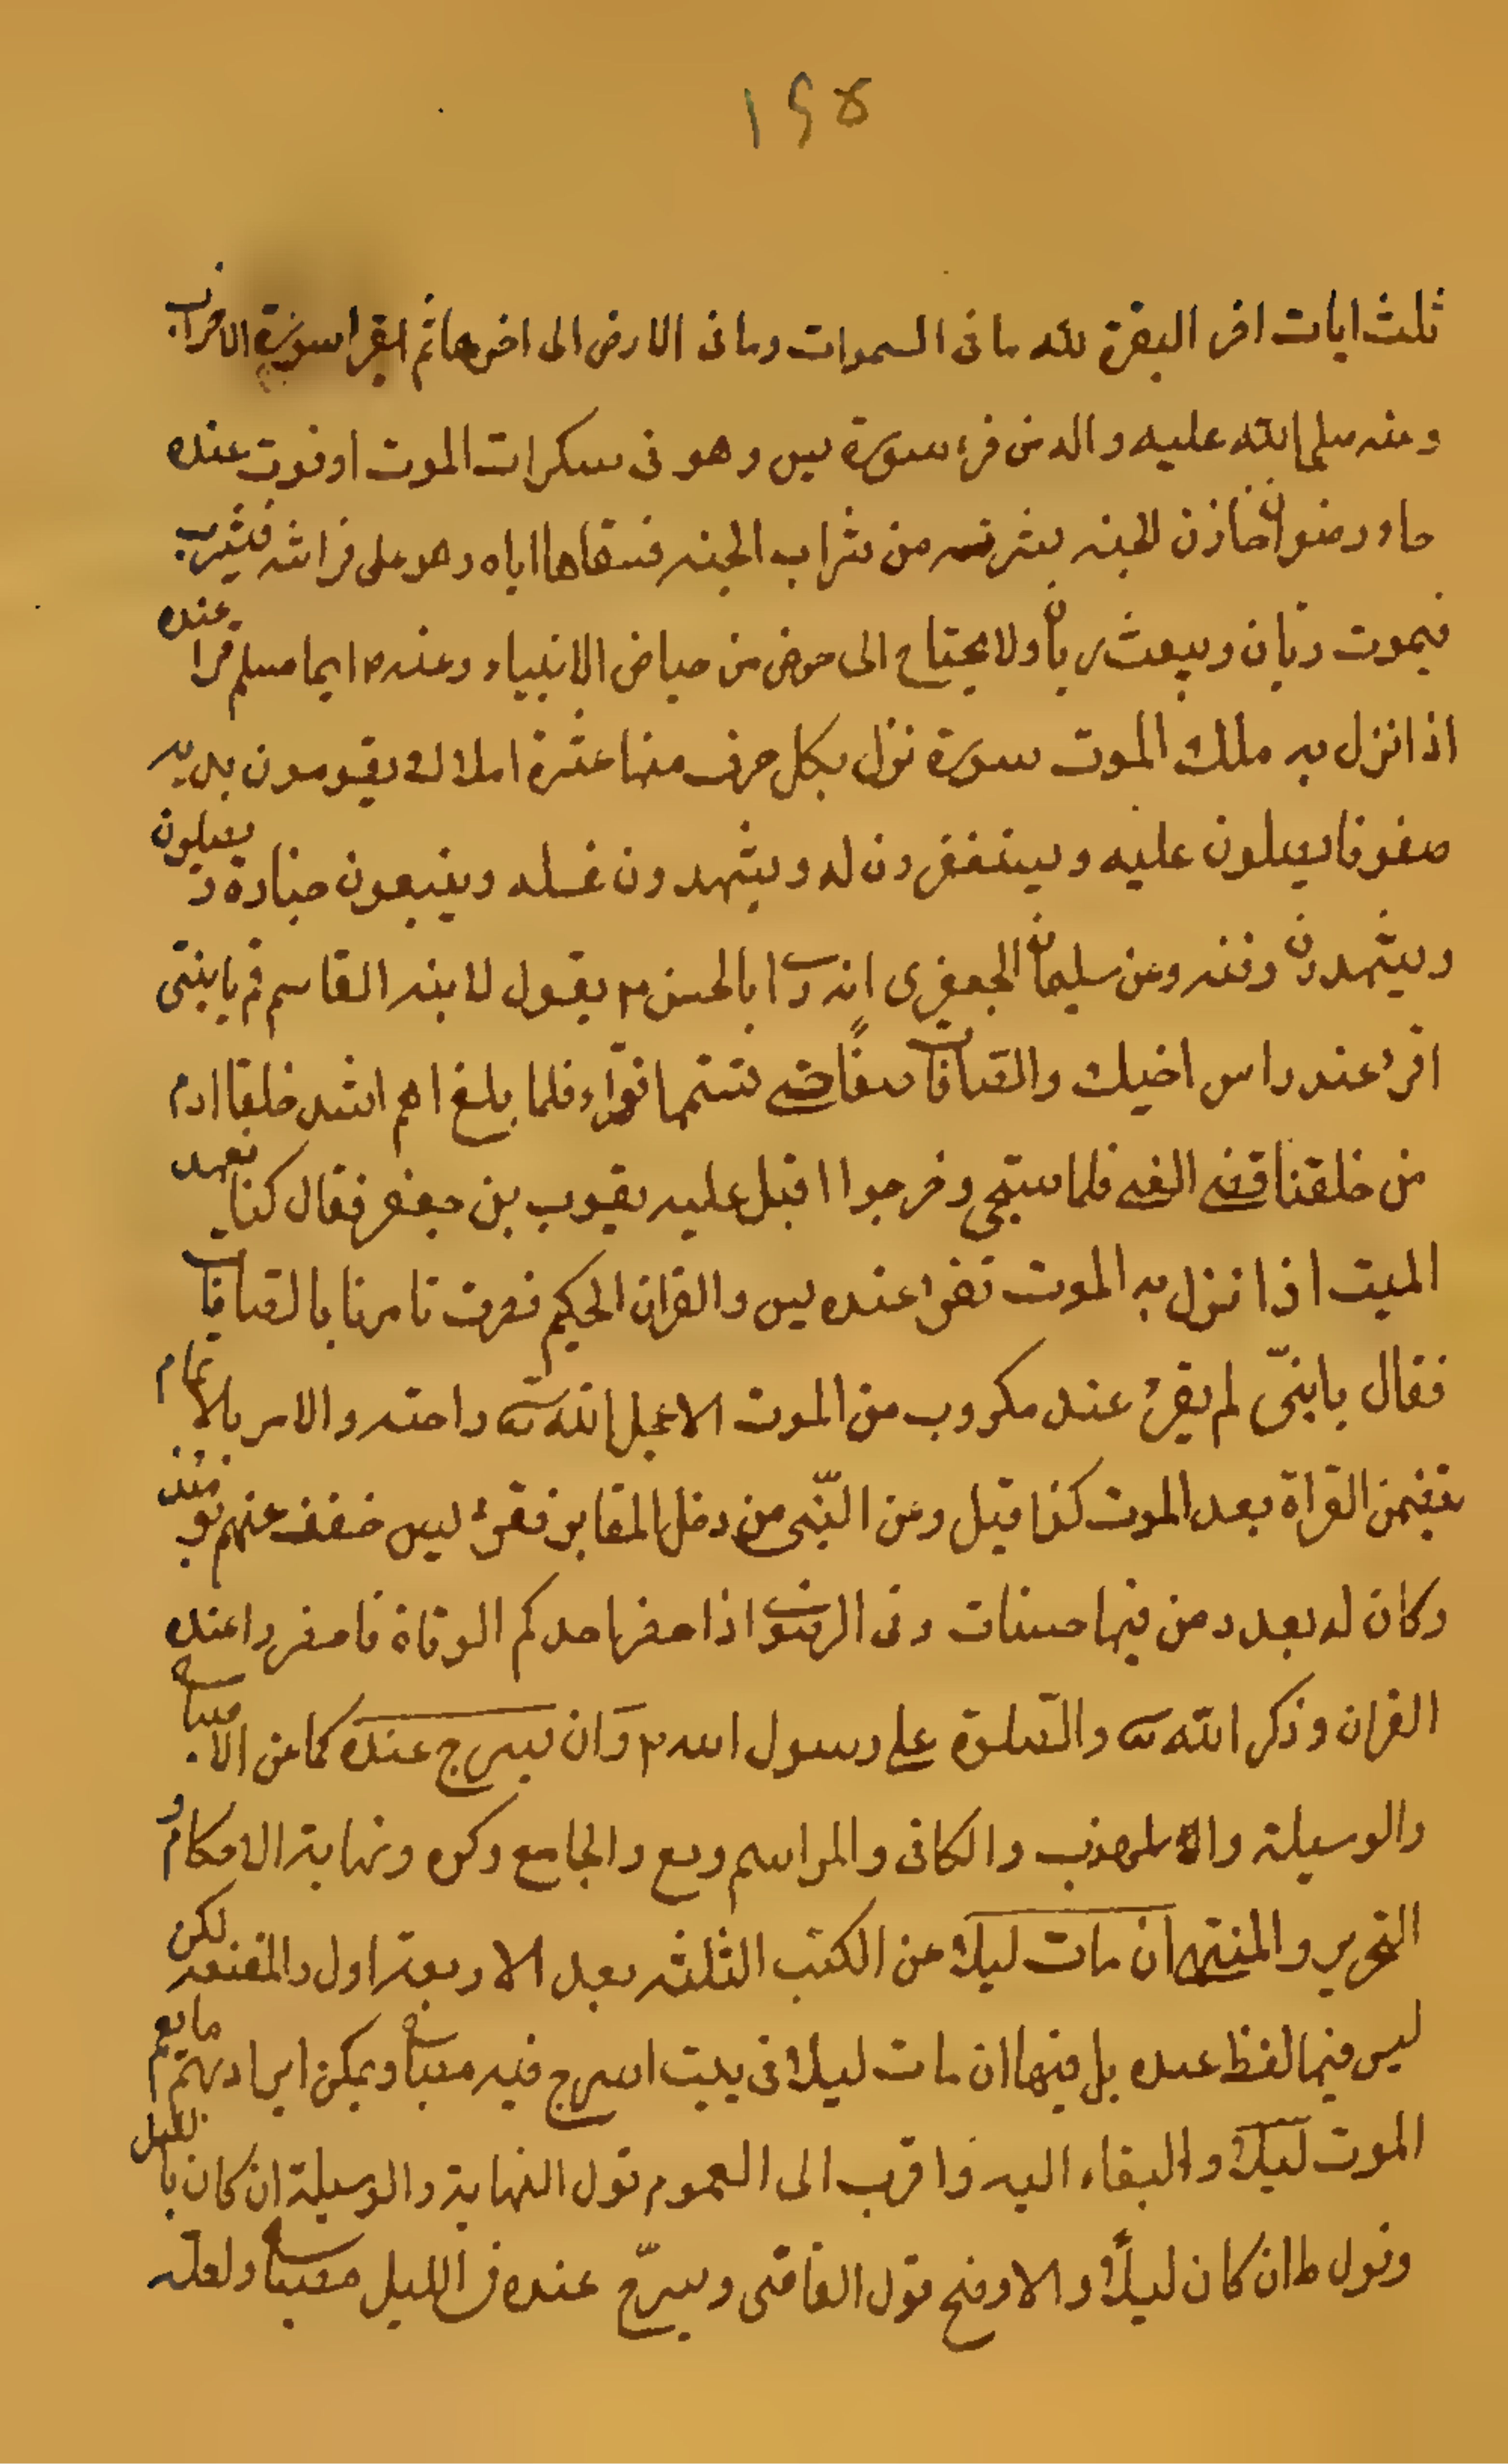 ١٩٥
ثلث ايات اخر البقرة لله ما فى السموات وما فى الارض الى اخرها ثم اقرا سورة الاحزاب
وعنه صلى الله عليه واله من قرء سورة يس وهو فى سكرات الموت او قريت عنده
جاء رضوان خازن الجنه بشربته من شراب الجنه فسقاها اياه وهو على فراشه فيشرب
فيموت ريان ويبعث ريان ولا يحتاج الى حوض من حياض الانبياء وعنه م ايما مسلم قرا عنده
اذا نزل به ملك الموت سورة نزل بكل حرف منها عشرة املاك يقومون بين يديه
صفوفا يصلون عليه ويستغفرون له ويشهدون غسله ويتبعون جنازة ويصلون
ويشهدون دفنه وعن سليمان الجعفرى انه راى ابا الحسن م يقول لابنه القاسم قم يا بنى
اقرء عند راس اخيك والصافات صفا حتى تستتمها فقراء فلما بلغ اهم اشد خلقا ام
من خلقنا قضى الفتى فلما سجى وخرجوا اقبل عليه يعقوب بن جعفر فقال كنا نعهد
الميت اذا نزل به الموت نقرء عنده يس والقران الحكيم فصرت تامرنا بالصافات
فقال يا بنىّ لم يقرء عند مكروب من الموت الا عجل الله تع راحته والامر بالاتمام
يتضمن القراة بعد الموت كذا قيل وعن النّبى ص من دخل المقابر فقرء يس خفف عنهم يومئذ
وكان له بعدد من فيها حسنات وفى الرضوى اذا حضر احدكم الوفاة فاحضروا عنده
القران وذكر الله تع والصلوة على رسول الله م وان يسرج عنده كما عن الاصباح
والوسيلة والمهذب والكافى والمراسم ويع والجامع وكره ونهاية الاحكام و
التحرير والمنتهى ان مات ليلا عن الكتب الثلثه بعد الاربعة اول والمقنعه لكن
ليس فيها لفظ عنده بل فيها ان مات ليلا فى بيت اسرج فيه مصباح ويمكن ايرادهم ما يعم
الموت ليلا والبقاء اليه واقرب الى العموم قول النهاية والوسيلة ان كان بالليل
وقول ط ان كان ليلاً والاوضح قول القاضى ويسرّج عنده فى الليل مصباح ولعله